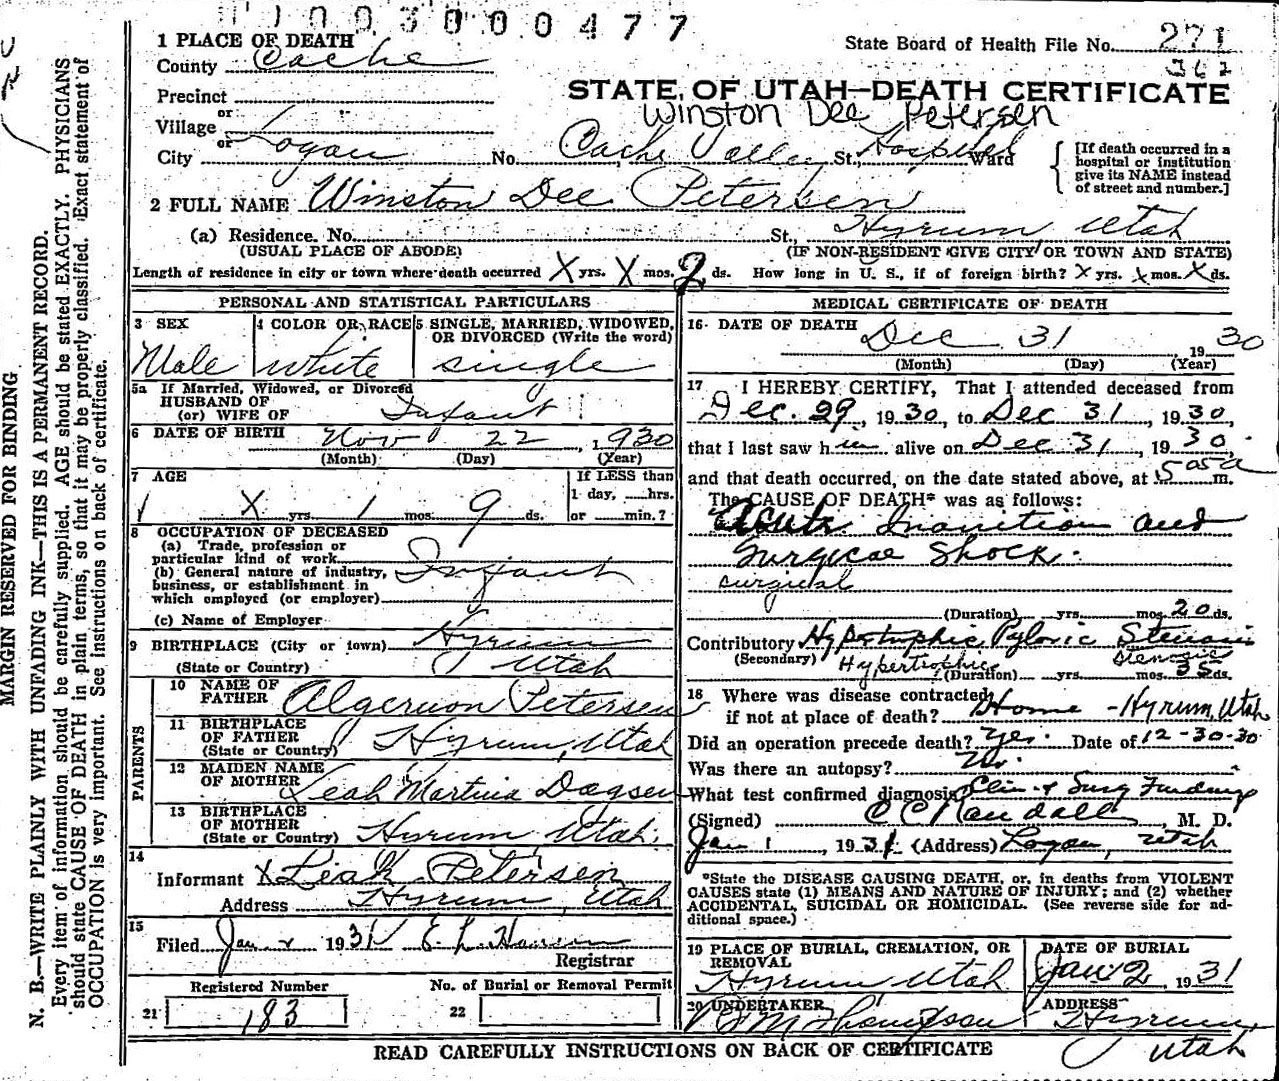 003000477
1 PLACE OF DEATH
State Board of Health File No. 271
County Cache
362
STATE OF UTAH—DEATH CERTIFICATE
Precinct
Winston Dee Petersen
or
Village
or
City Logan No. Cache Valley St., Hospital Ward
[If death occurred in a
hospital or institution
give its NAME instead
of street and number.]
2 FULL NAME Winston Dee Petersen
(a) Residence. No. St., Hyrum Utah
(USUAL PLACE OF ABODE) (IF NON-RESIDENT GIVE CITY OR TOWN AND STATE)
Length of residence in city or town where death occurred X yrs. X mos. 2 ds. How long in U. S., if of foreign birth? X yrs. X mos. X ds.
PERSONAL AND STATISTICAL PARTICULARS
3 SEX 4 COLOR OR RACE 5 SINGLE, MARRIED, WIDOWED,
OR DIVORCED (Write the word)
Male white single
5a If Married, Widowed, or Divorced
HUSBAND OF
(or) WIFE OF Infant
6 DATE OF BIRTH Nov 22, 1930
(Month) (Day) (Year)
7 AGE If LESS than
1 day, hrs.
X yrs. 1 mos. 9 ds. or min.?
8 OCCUPATION OF DECEASED
(a) Trade, profession or
particular kind of work
(b) General nature of industry, Infant
business, or establishment in
which employed (or employer)
(c) Name of Employer
9 BIRTHPLACE (City or town) Hyrum
(State or Country) Utah
PARENTS
10 NAME OF
FATHER Algernon Petersen
11 BIRTHPLACE
OF FATHER
(State or Country) Hyrum, Utah
12 MAIDEN NAME
OF MOTHER Leah Martina
13 BIRTHPLACE
OF MOTHER
(State or Country) Hyrum, Utah.
14
Informant X Leah Petersen
Address Hyrum, Utah
15
Filed Jan 1931 E. L. Hansen
Registrar
Registered Number No. of Burial or Removal Permit
21 183 22
MEDICAL CERTIFICATE OF DEATH
16 DATE OF DEATH Dec 31 1930
(Month) (Day) (Year)
17 I HEREBY CERTIFY, That I attended deceased from
Dec. 29, 1930, to Dec 31, 1930,
that I last saw him alive on Dec 31, 1930.
and that death occurred, on the date stated above, at 5 05 a m.
The CAUSE OF DEATH* was as follows:
Acute Inanition and
Surgical Shock.
surgical
(Duration) yrs. mos. 20 ds.
Contributory Hypertrophic Pyloric Stenosis
(Secondary) Hypertrophic Stenosis
(Duration) yrs. mos. 35 ds.
18 Where was disease contracted
if not at place of death? Home - Hyrum, Utah
Did an operation precede death? Yes. Date of 12-30-30
Was there an autopsy? No.
What test confirmed diagnosis? Clin. & Surg Findings
(Signed) C C Randall, M. D.
Jan 1, 1931 (Address) Logan, Utah
*State the DISEASE CAUSING DEATH, or, in deaths from VIOLENT
CAUSES state (1) MEANS AND NATURE OF INJURY; and (2) whether
ACCIDENTAL, SUICIDAL OR HOMICIDAL. (See reverse side for ad-
ditional space.)
19 PLACE OF BURIAL, CREMATION, OR
REMOVAL
Hyrum Utah
DATE OF BURIAL
Jan 2, 1931
20 UNDERTAKER
Thompson
ADDRESS
Hyrum
Utah
READ CAREFULLY INSTRUCTIONS ON BACK OF CERTIFICATE
MARGIN RESERVED FOR BINDING
N. B.—WRITE PLAINLY WITH UNFADING INK—THIS IS A PERMANENT RECORD.
Every item of information should be carefully supplied. AGE should be stated EXACTLY. PHYSICIANS
should state CAUSE OF DEATH in plain terms, so that it may be properly classified. Exact statement of
OCCUPATION is very important. See instructions on back of certificate.